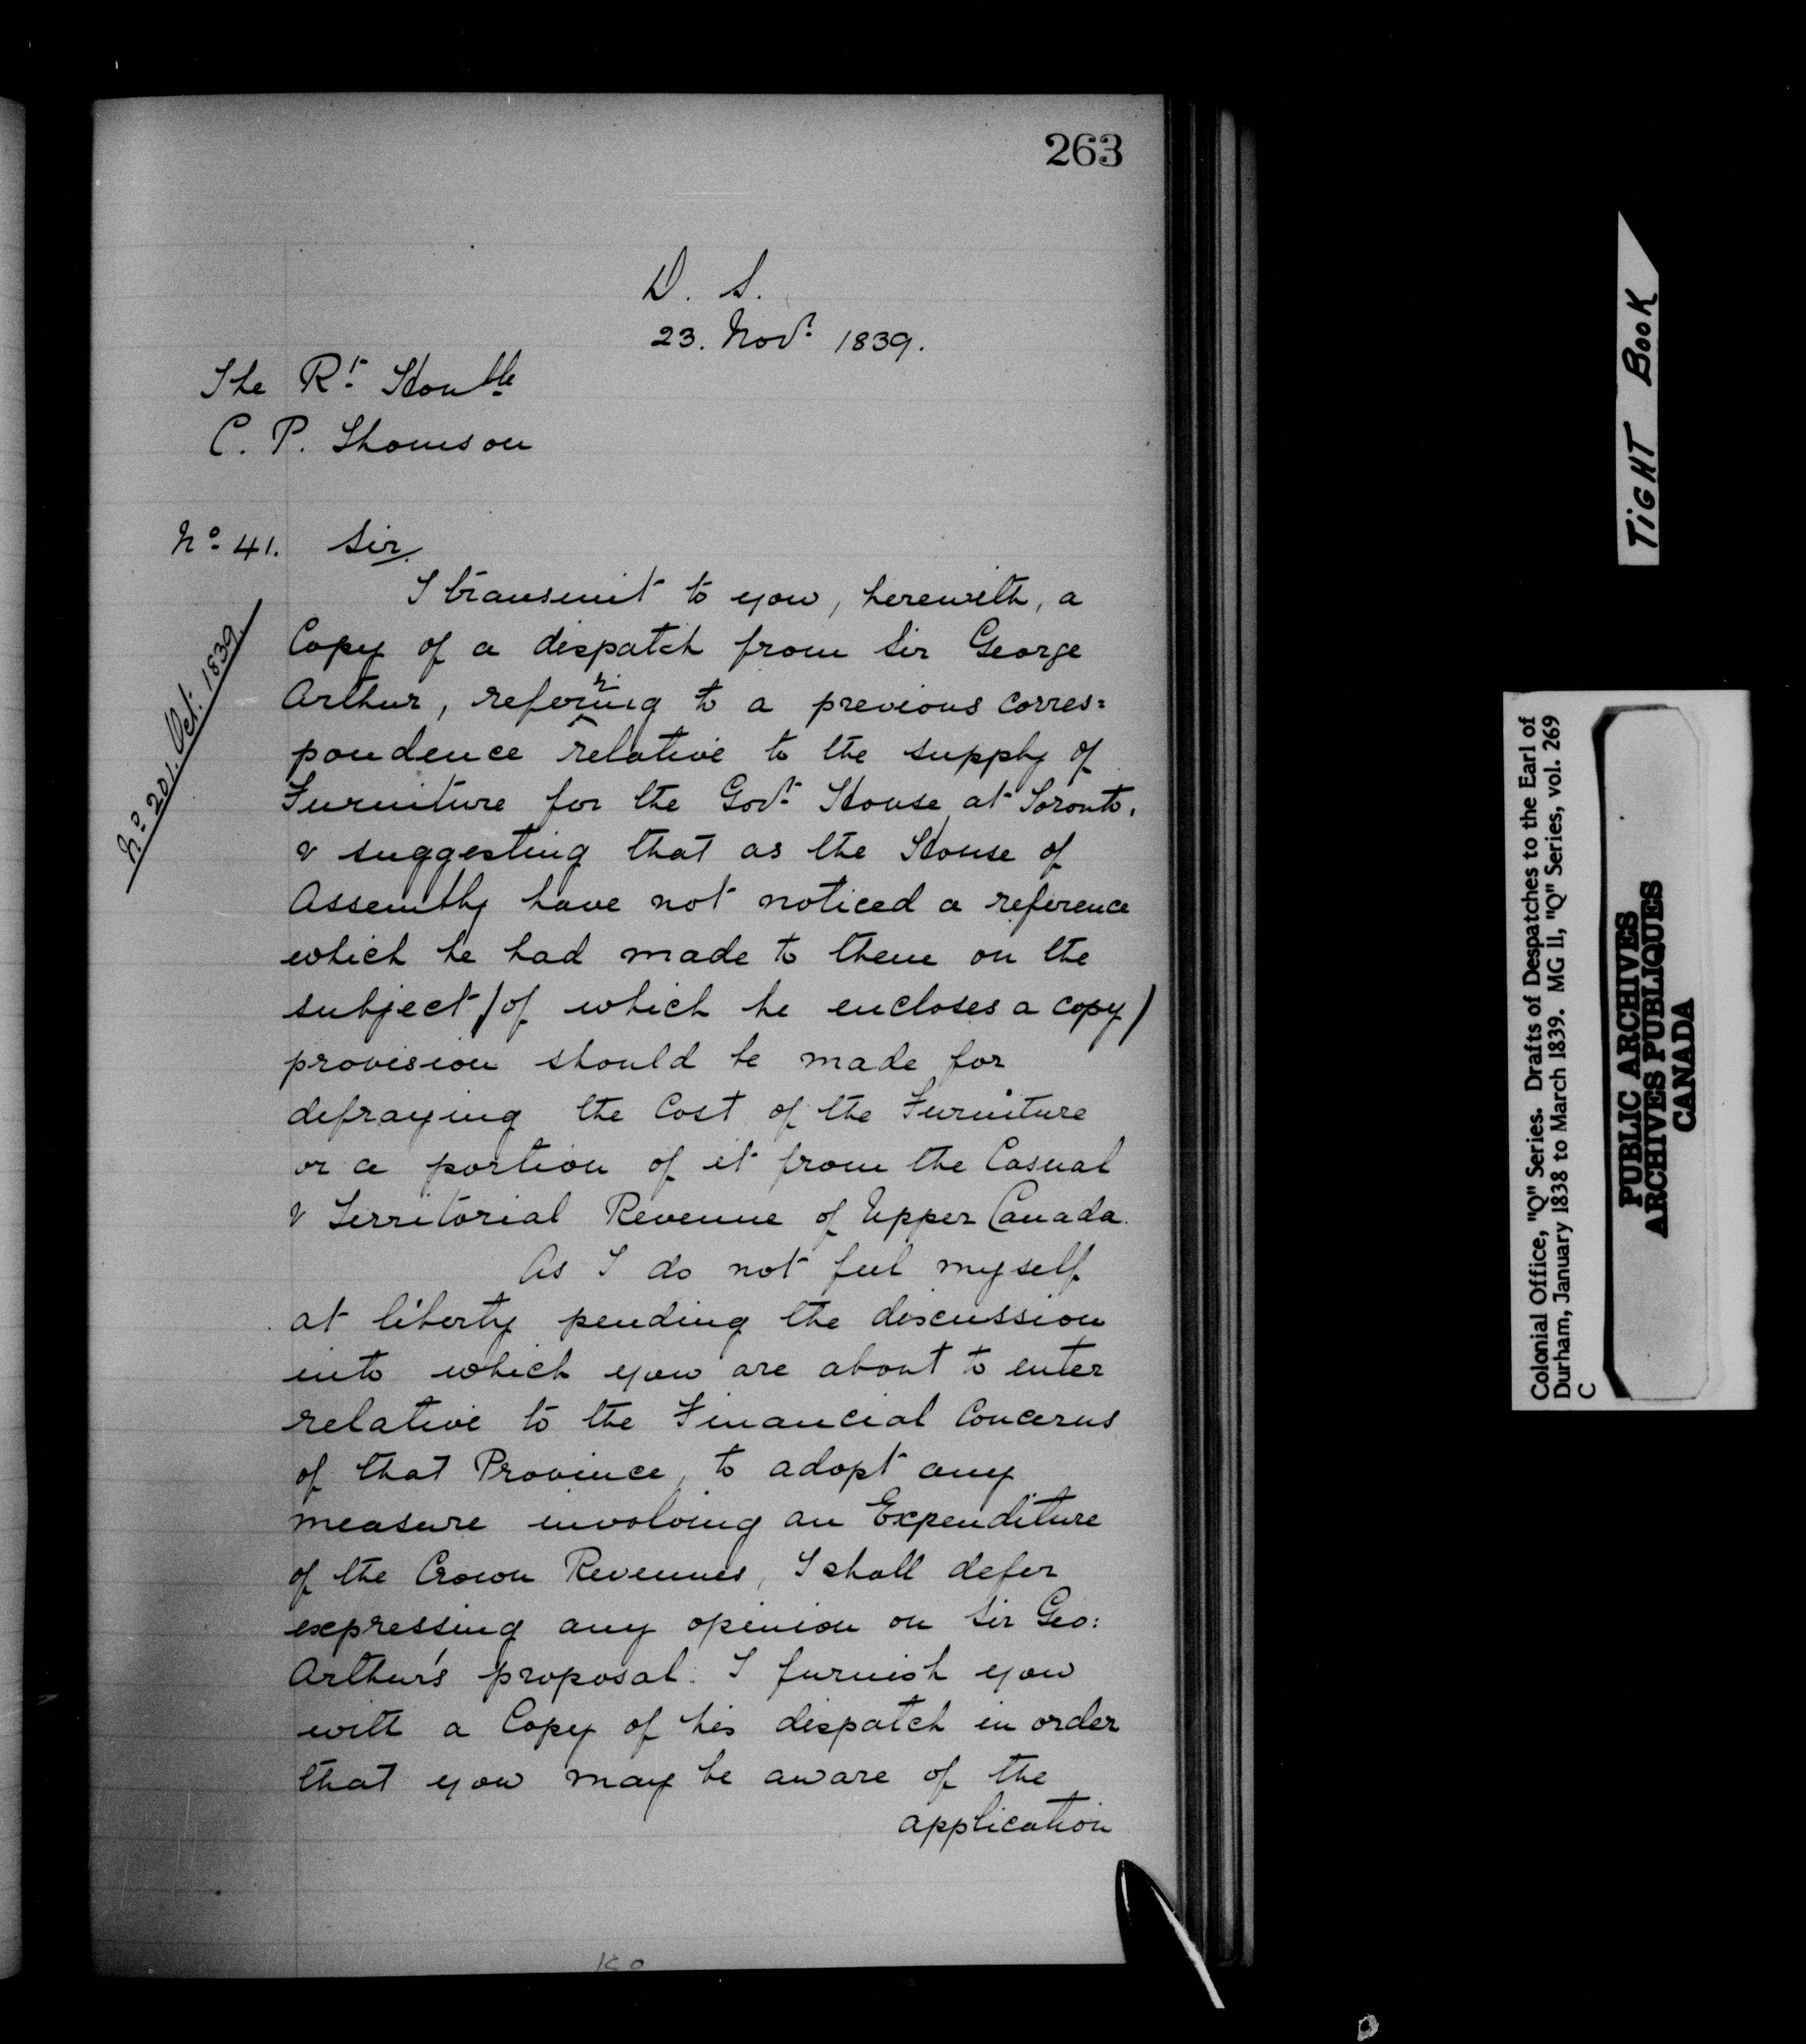 263
D. S.
23. Novr. 1839.
The Rt. Honble.
C. P. Thomson
No. 41. Sir,
No. 201. Oct: 1839.
I transmit to you, herewith, a
Copy of a dispatch from Sir George
Arthur, referring to a previous corres=
pondence relative to the supply of
Furniture for the Govt. House at Toronto,
& suggesting that as the House of
Assembly have not noticed a reference
which he had made to them on the
subject /of which he encloses a copy/
provision should be made for
defraying the Cost of the Furniture
or a portion of it from the Casual
& Territorial Revenue of Upper Canada.
As I do not feel myself
at liberty pending the discussion
into which you are about to enter
relative to the Financial Concerns
of that Province, to adopt any
measure involving an Expenditure
of the Crown Revenues, I shall defer
expressing any opinion on Sir Geo:
Arthur's proposal. I furnish you
with a Copy of his dispatch in order
that you may be aware of the
application
TIGHT BOOK
Colonial Office, "Q" Series. Drafts of Despatches to the Earl of
Durham, January 1838 to March 1839. MG 11, "Q" Series, vol. 269
C
PUBLIC ARCHIVES
ARCHIVES PUBLIQUES
CANADA